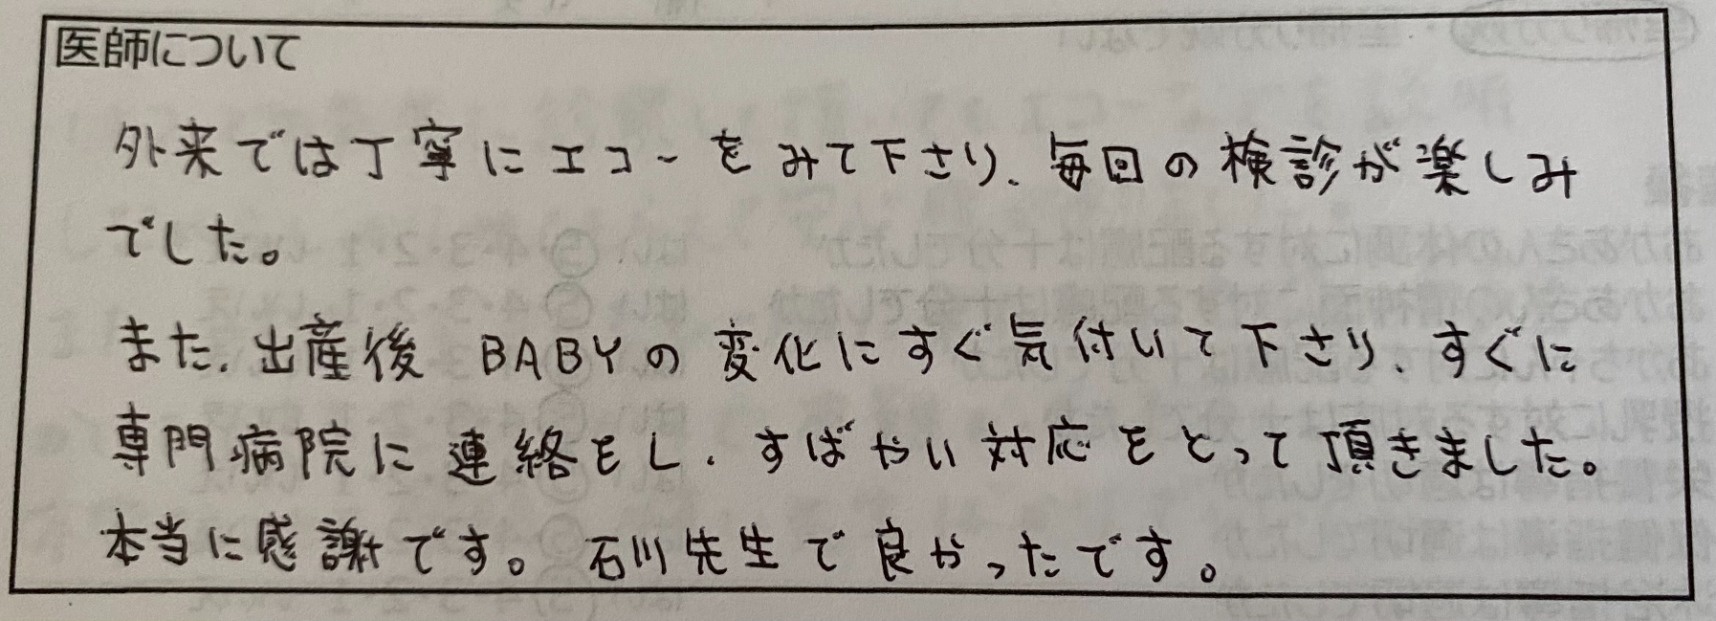 医師について
外来では丁寧にエコーをみて下さり、毎回の検診が楽しみ
でした。
また、出産後 BABYの変化にすぐ気付いて下さり、すぐに
専門病院に連絡をし、すばやい対応をとって頂きました。
本当に感謝です。石川先生で良かったです。